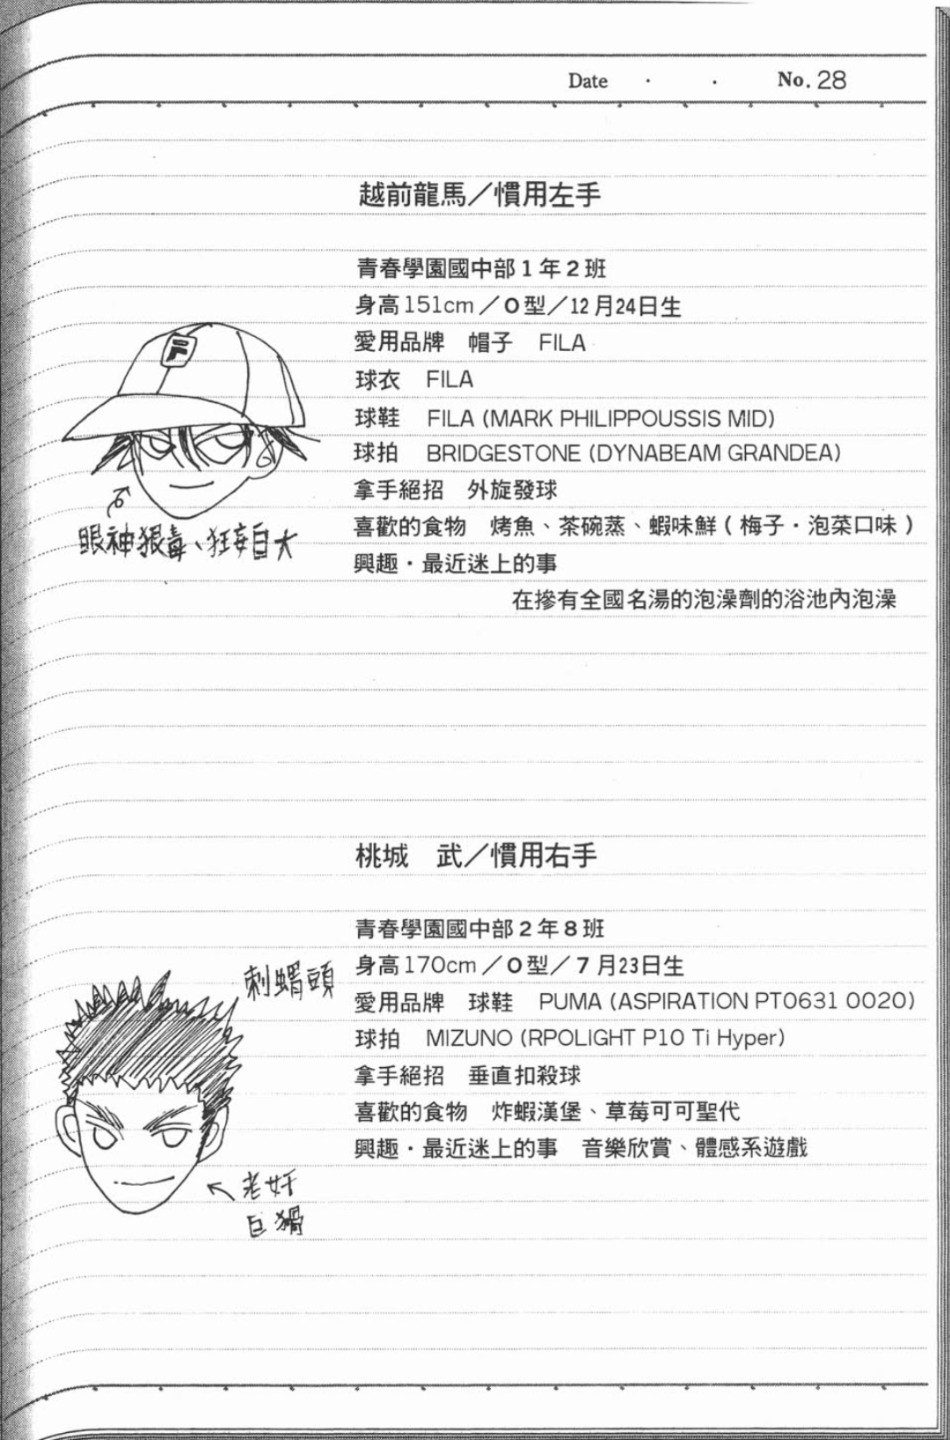 Date ・ ・ No. 28
越前龍馬／慣用左手
青春學園國中部1年2班
身高151cm／O型／12月24日生
愛用品牌　帽子　FILA
球衣　FILA
球鞋　FILA (MARK PHILIPPOUSSIS MID)
球拍　BRIDGESTONE (DYNABEAM GRANDEA)
拿手絕招　外旋發球
喜歡的食物　烤魚、茶碗蒸、蝦味鮮（梅子・泡菜口味）
興趣・最近迷上的事
在摻有全國名湯的泡澡劑的浴池內泡澡
F
眼神狠毒、狂妄自大
桃城　武／慣用右手
青春學園國中部2年8班
身高170cm／O型／7月23日生
愛用品牌　球鞋　PUMA (ASPIRATION PT0631 0020)
球拍　MIZUNO (RPOLIGHT P10 Ti Hyper)
拿手絕招　垂直扣殺球
喜歡的食物　炸蝦漢堡、草莓可可聖代
興趣・最近迷上的事　音樂欣賞、體感系遊戲
刺蝟頭
老奸
巨猾